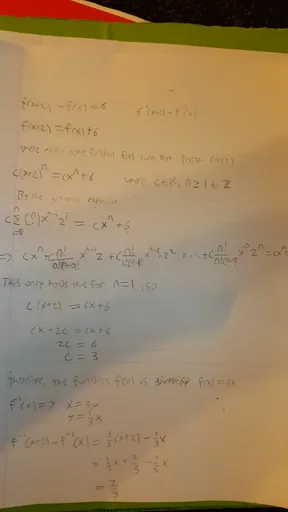 f(x+2) - f(x) = 6 f⁻¹(x+2) - f⁻¹(x)
f(x+2) = f(x) + 6
there exists some function f(x) such that
c(x+2)ⁿ = cxⁿ + 6 where c ∈ ℝ, n ≥ 1 ∈ ℤ
By the binomial expansion
c Σ (n i) xⁿ⁻ⁱ 2ⁱ = cxⁿ + 6
i=0
This only holds true for n=1, so
c(x+2) = cx + 6
cx + 2c = cx + 6
2c = 6
c = 3
therefore, the function f(x) is f(x) = 3x
f⁻¹(x) => x = 3y
y = ⅓x
f⁻¹(x+2) - f⁻¹(x) = ⅓(x+2) - ⅓x
= ⅓x + ⅔ - ⅓x
= ⅔